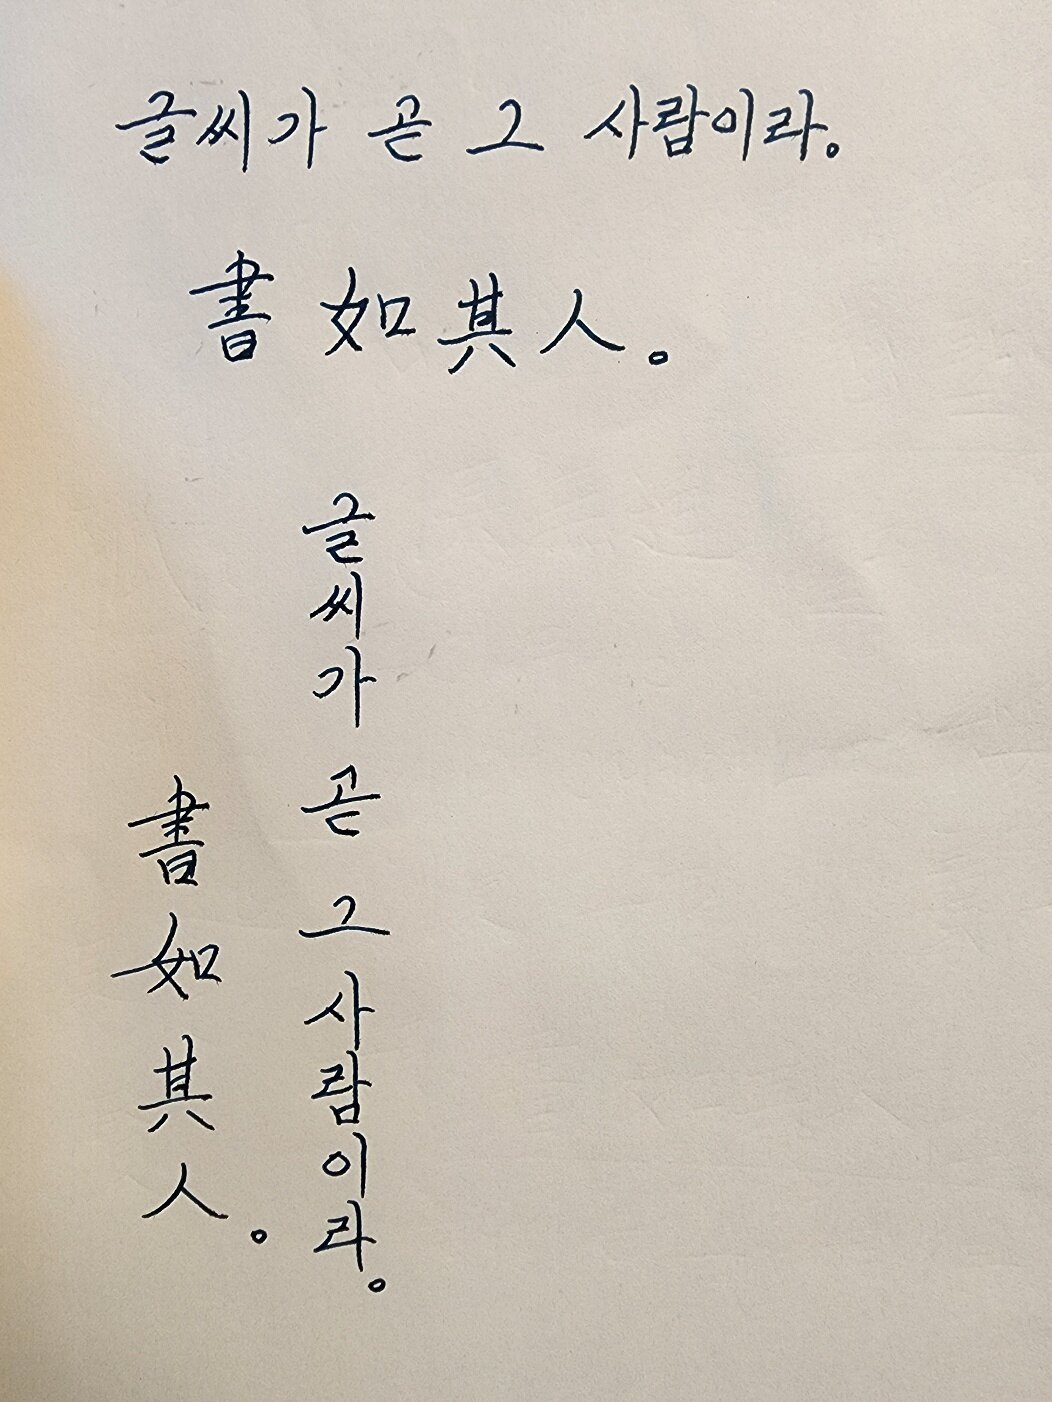 글씨가 곧 그 사람이라。
書如其人。
글씨가 곧 그 사람이라。
書如其人。